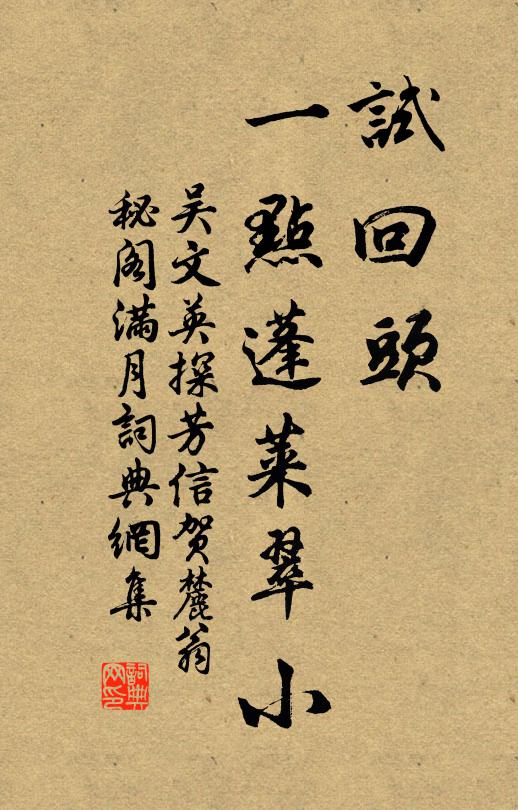 試回頭
一點蓬萊翠小
吴文英探芳信賀麓翁
秘阁滿月詞典網集
詞典
网印